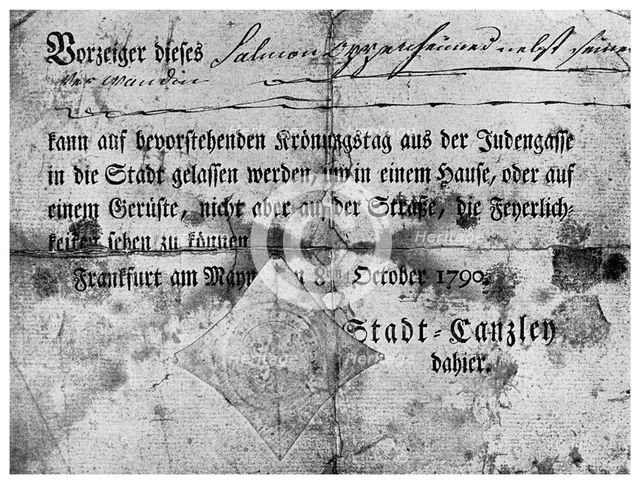 Vorzeiger dieses Salmon Oppenheimer nebst seiner
Verwandin
kann auf bevorstehenden Krönungstag aus der Judengasse
in die Stadt gelassen werden, um in einem Hause, oder auf
einem Gerüste, nicht aber auf der Straße, die Feyerlich-
keiten sehen zu können
Frankfurt am Mayn 8 October 1790.
Stadt-Canzley
dahier.
Heritage
Heritage
Heritage